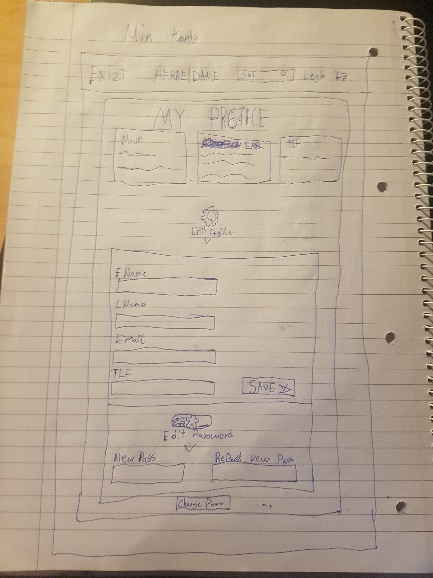 Min konto
EXIZT HERRE DAME Login
MY PROFILE
Navn
TLF
Edit Profile
F Name
LName
Email
TLF
SAVE >>
Edit Password
New Pass Repeat new Pass
Change Pass